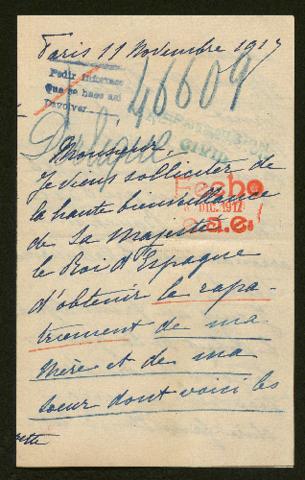 Paris 11 Novembre 1917
Pedir informes
Que se hace así
Devolver
46609
Monsieur,
Je viens solliciter de
la haute bienveillance
Fecho
DIC. 1917
de Sa Majesté
le Roi d'Espagne
d'obtenir le rapa-
triement de ma
mère et de ma
soeur dont voici les